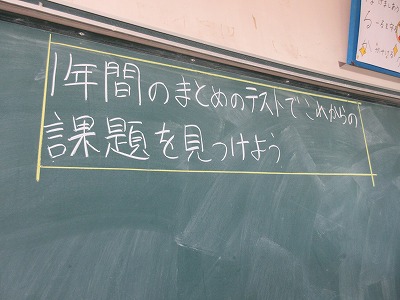 1年間のまとめのテストでこれからの
課題を見つけよう